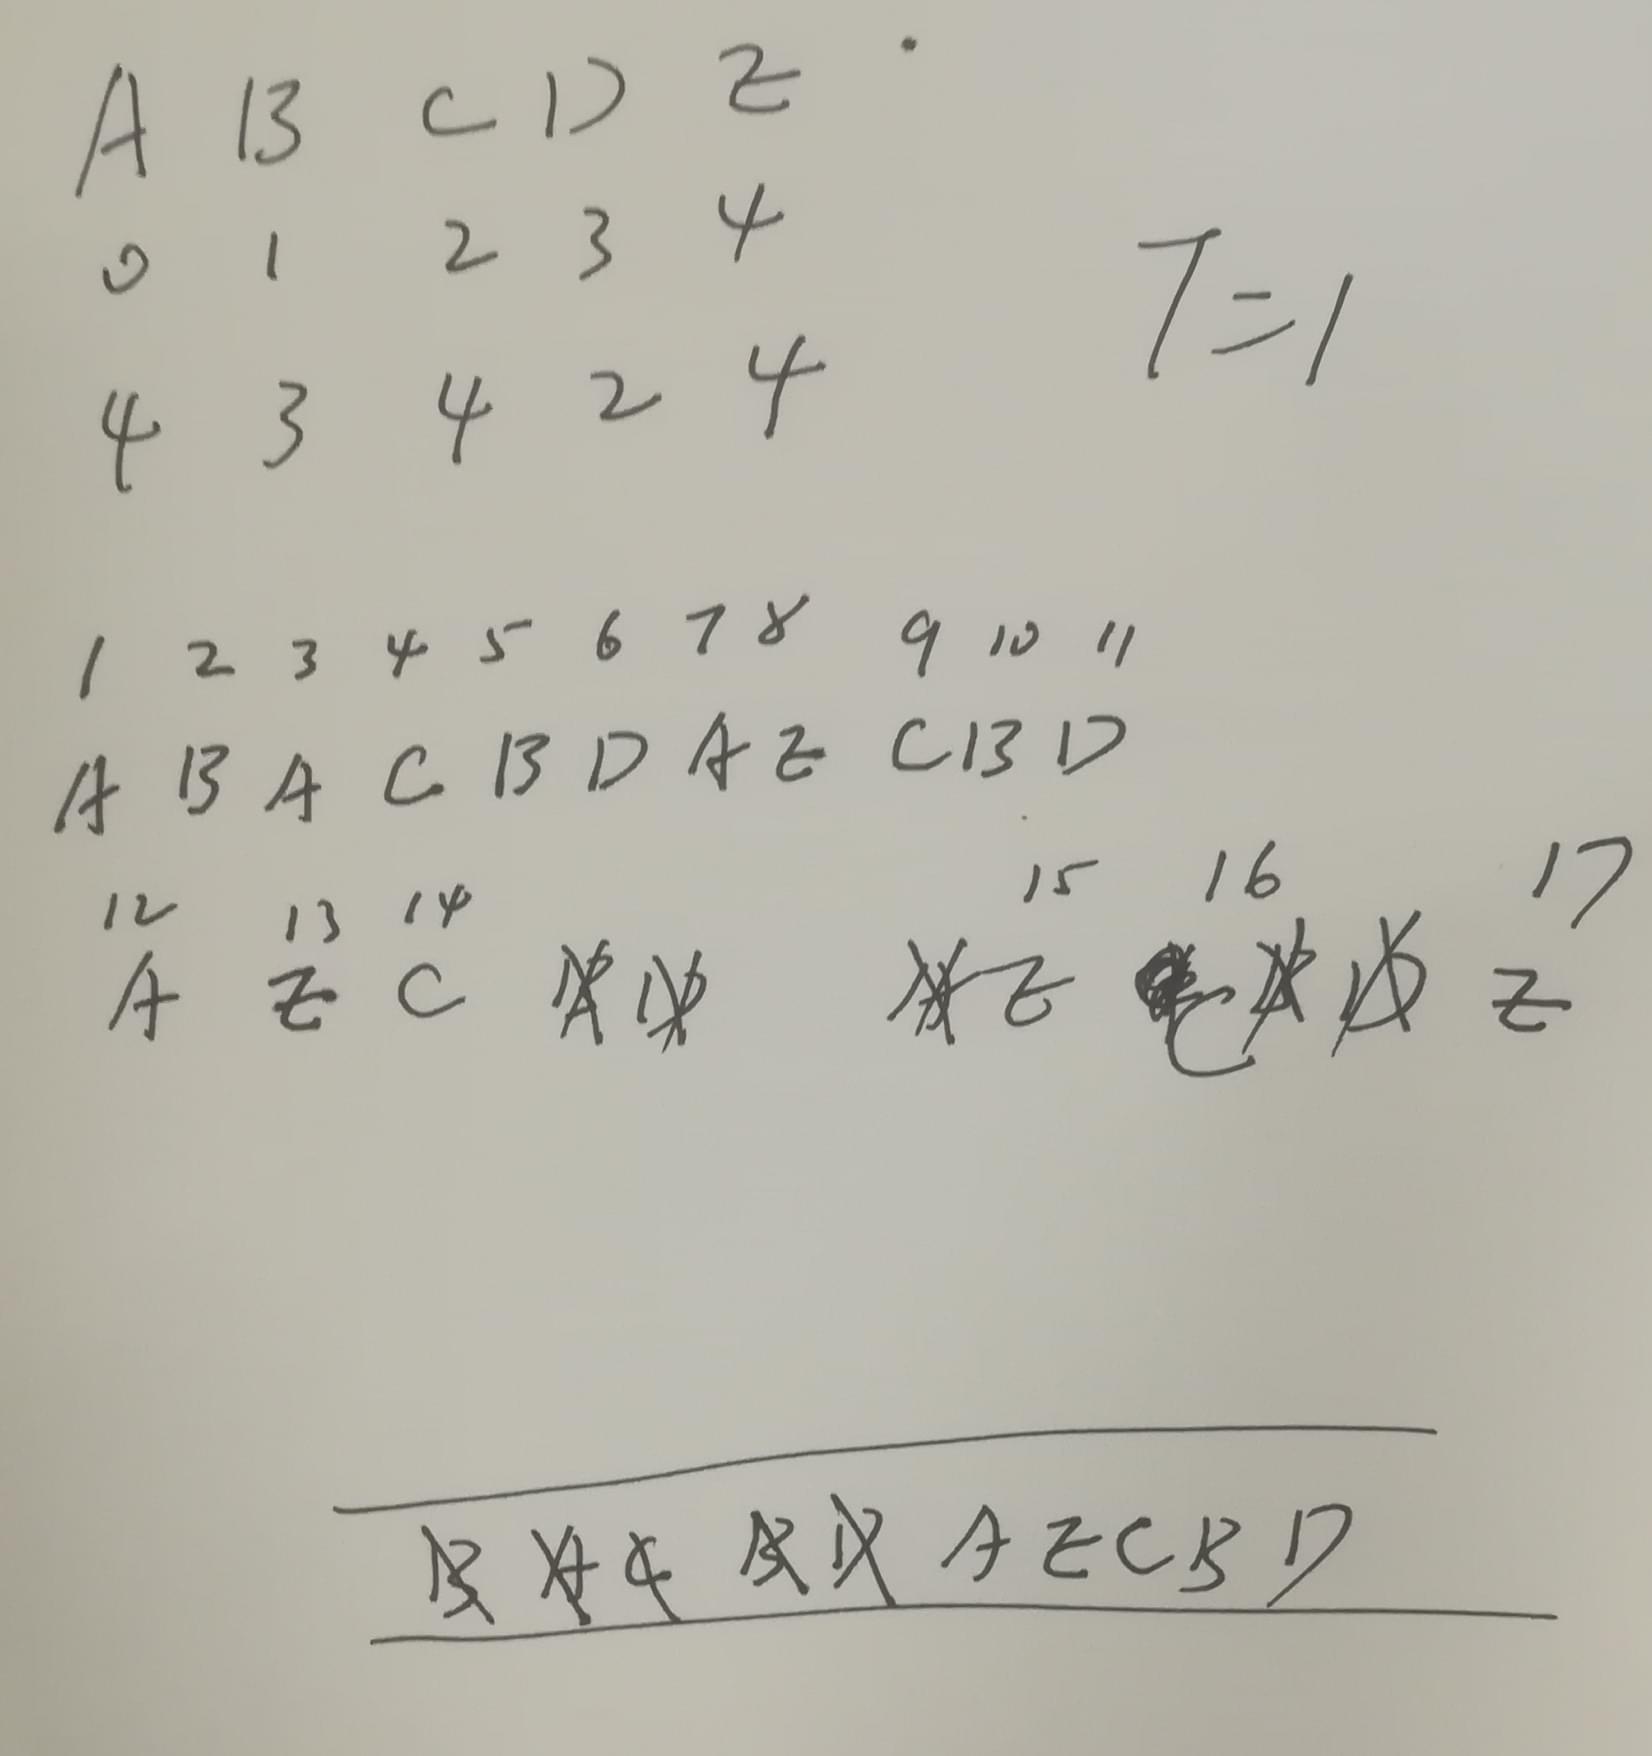 A B C D E
0 1 2 3 4
4 3 4 2 4
T=1
1 2 3 4 5 6 7 8 9 10 11
A B A C B D A E C B D
12 13 14 15 16 17
A E C E C E
B A C B D A E C B D